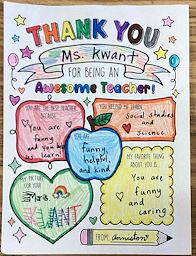 THANK YOU
Ms. Kwant
FOR BEING AN
Awesome Teacher!
YOU ARE THE BEST TEACHER
BECAUSE
You are
funny
and you help
us learn!
YOU HELPED ME LEARN
Social studies
and
Science.
YOU ARE
funny,
helpful,
and kind
MY PICTURE
FOR YOU
Ms.
KWANT
MY FAVORITE THING
ABOUT YOU IS
You are
funny
and
caring
FROM:
Anniston